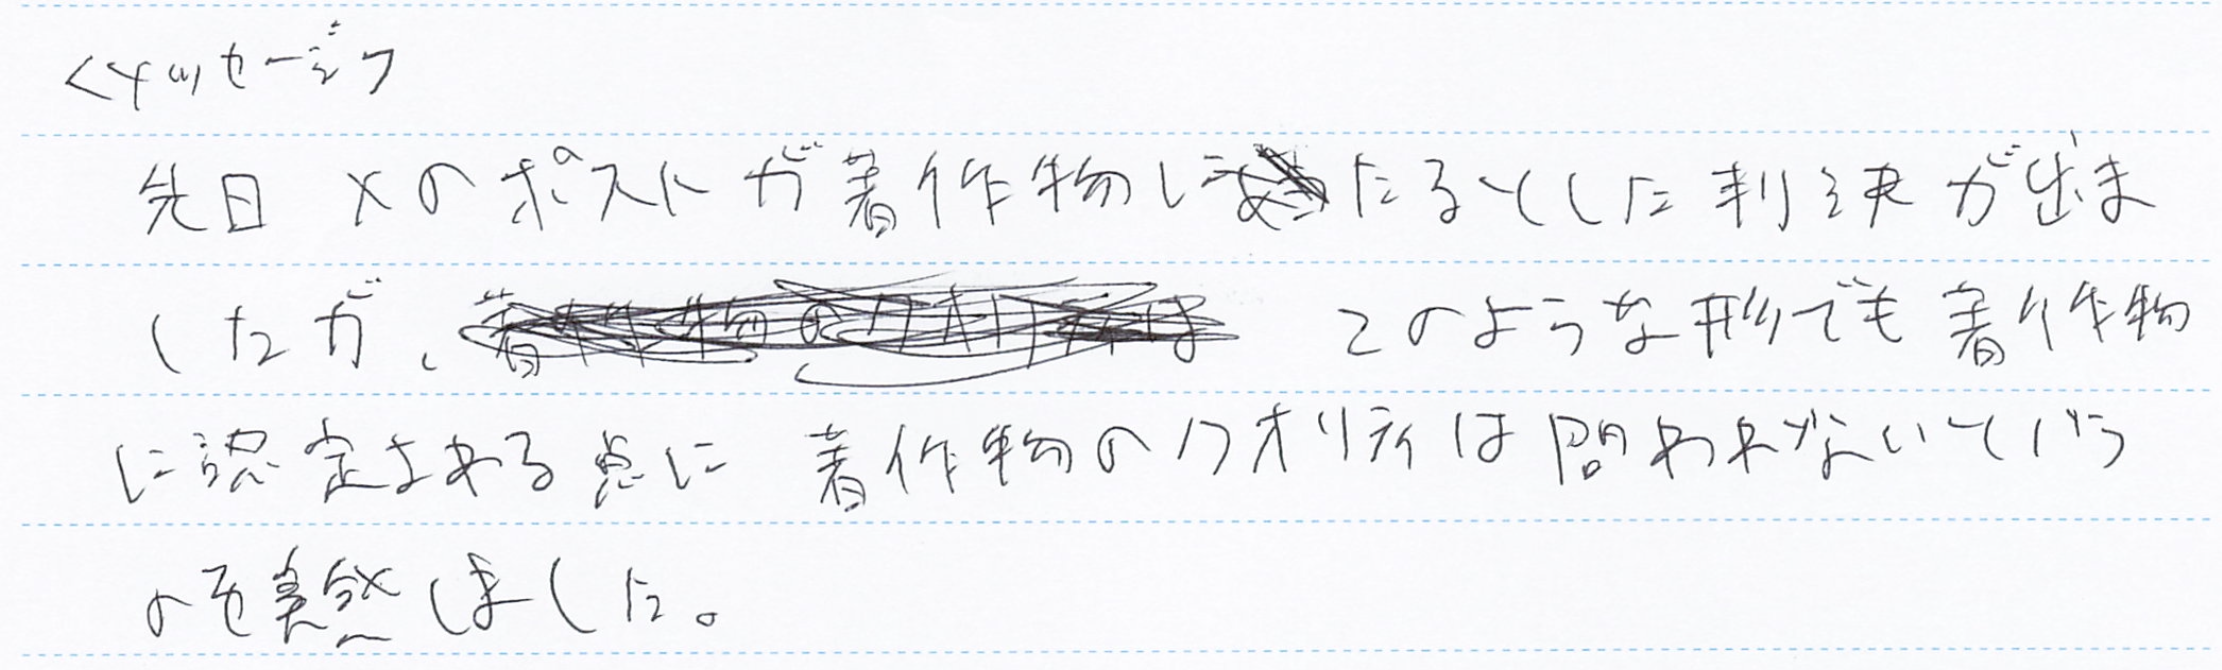 <メッセージ>
先日 Xのポストが著作物にあたるとした判決が出ま
したが、このような形でも著作物
に認定される点に 著作物のクオリティは問われないという
のを実感しました。